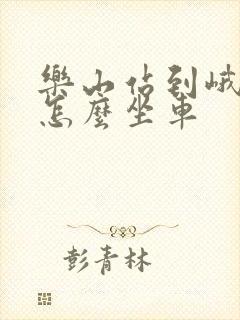 樂山站到峨
怎麼坐車
彭青林